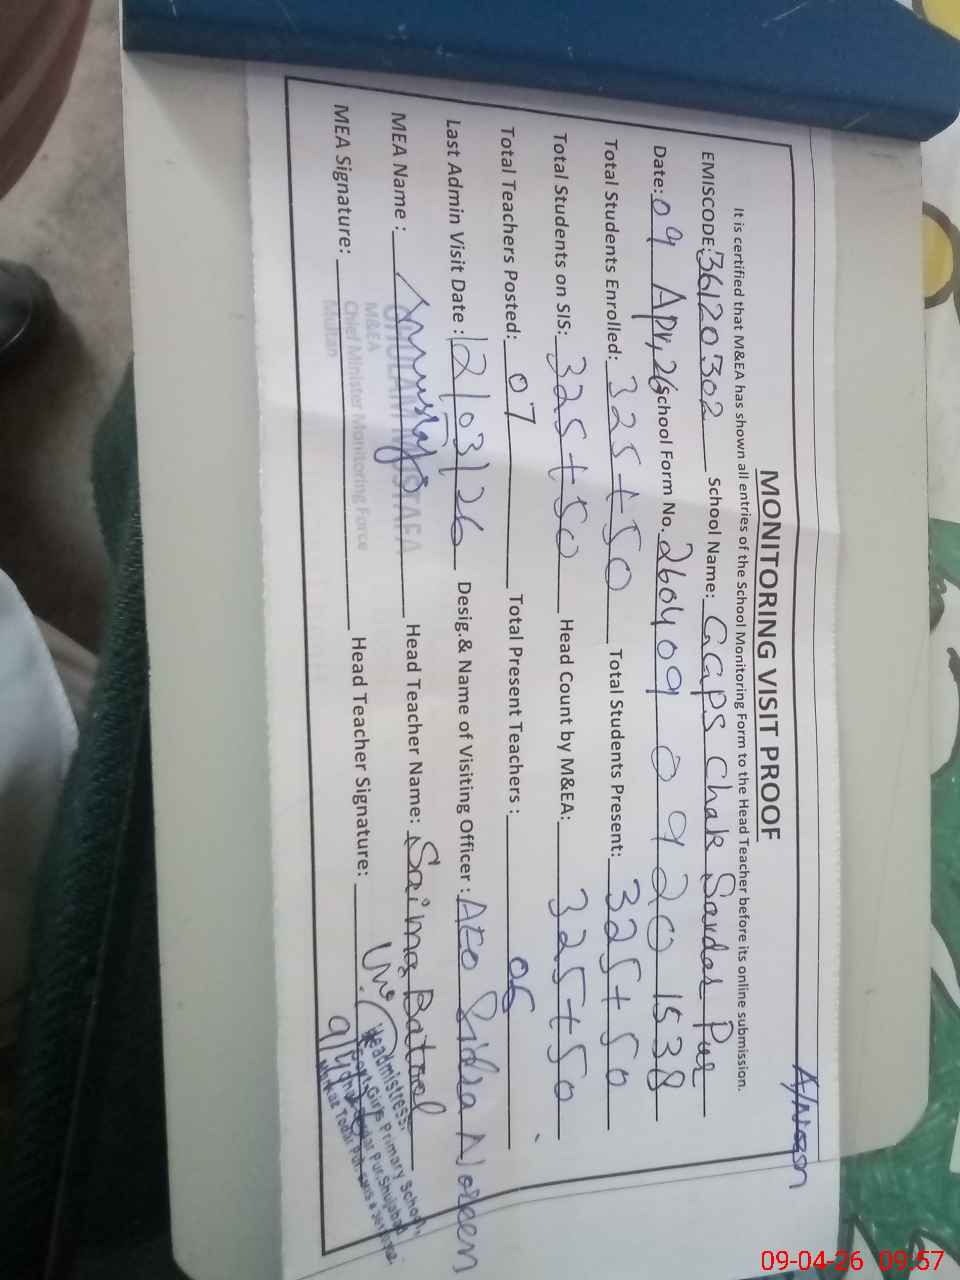 A/Noon
MONITORING VISIT PROOF
It is certified that M&EA has shown all entries of the School Monitoring Form to the Head Teacher before its online submission.
EMISCODE: 36120302 School Name: GGPS Chak Sardar Pur
Date: 09 Apr, 26 School Form No. 260409 0 9 20 1538
Total Students Enrolled: 325+50 Total Students Present: 325+50
Total Students on SIS: 325+50 Head Count by M&EA: 325+50
Total Teachers Posted: 07 Total Present Teachers : 06
Last Admin Visit Date : 12/03/26 Desig.& Name of Visiting Officer : AEO Sidra Noreen
MEA Name : GHULAM MUSTAFA Head Teacher Name: Saima Batool
M&EA
Chief Minister Monitoring Force
Multan
MEA Signature: Head Teacher Signature:
Headmistress,
Govt. Girls Primary School,
Chak Sardar Pur, Shujabad
Markaz Todar Pur,
09-04-26 09:57